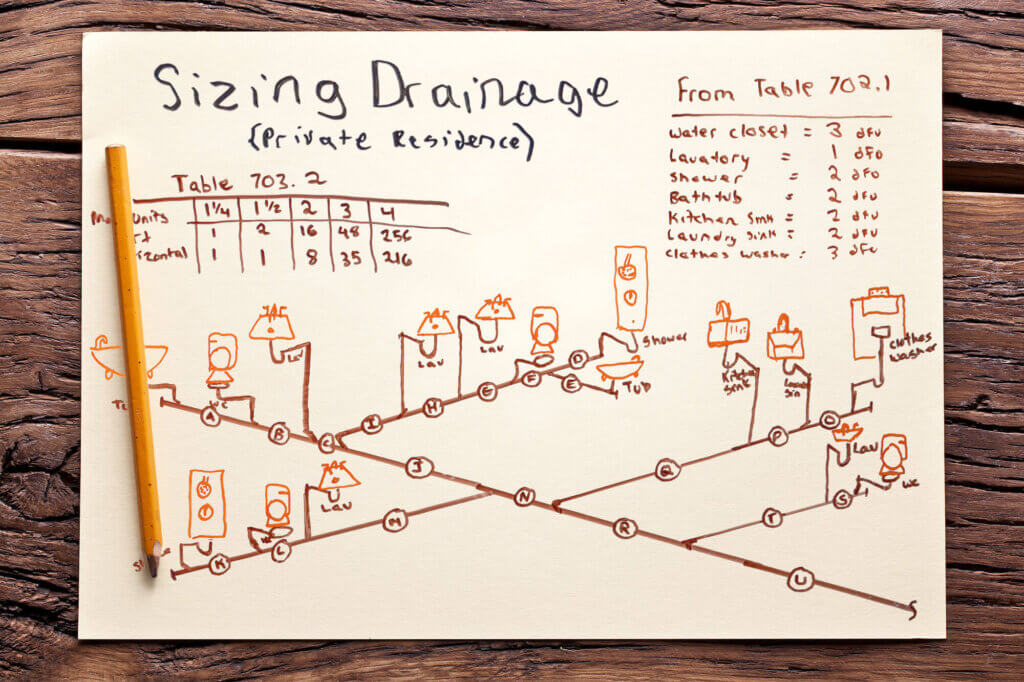 Sizing Drainage
(Private Residence)
From Table 702.1
water closet = 3 dfu
Lavatory = 1 dfu
shower = 2 dfu
Bathtub = 2 dfu
Kitchen Sink = 2 dfu
Laundry Sink = 2 dfu
clothes washer = 3 dfu
Table 703.2
Units 1 1/4 1 1/2 2 3 4
1 2 16 48 256
1 1 8 35 216
Lav
Lav
Lav
Shower
Tub
Kitchen Sink
clothes
washer
WC
Lav
WC
A
B
C
I
H
F
D
E
J
N
R
U
Q
P
O
T
S
Lav
K
L
M